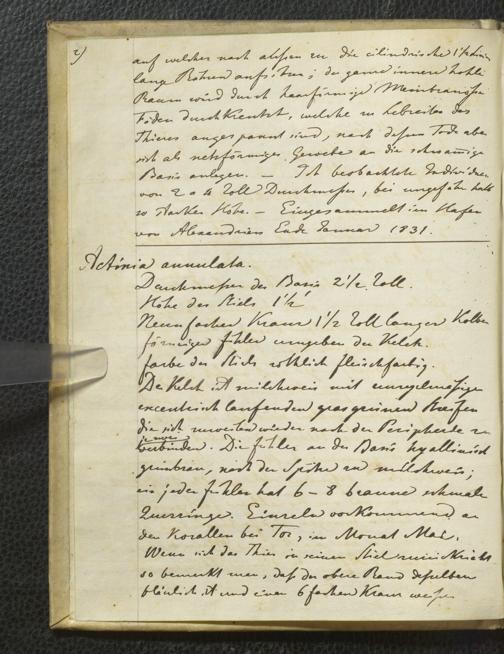 2)
auf welcher nach aussen zu die cilindrische 1½ Linie
lang Röhren aufsitzen; der ganze innere hohle
Raum wird durch haarförmige Membranöse
Fäden durchkreutzt, welche zu Lebzeiten des
Thieres angespannt sind, nach dessen Tode aber
sich als netzförmiges Gewebe an die schwammige
Basis anlegen. — Ich beobachtete Individuen
von 2 a 4 Zoll Durchmesser, bei ungefähr halb
so starker Höhe. — Eingesammelt im Hafen
von Alexandrien Ende Januar 1831.
Actinia annulata.
Durchmesser der Basis 2½ Zoll.
Höhe des Stiels 1½
Neunfacher Kranz 1½ Zoll langer Kolben
förmiger fühler umgeben den Kelch.
farbe des Stiels röthlich fleischfarbig.
Der Kelch ist milchweis mit unregelmäsigen
excentrisch laufenden grasgrünen Streifen
die sich unweiten wieder nach der Peripherie zu
verbinden. Die fühler an der Basis hyallinisch
grünbraun, nach der Spitze zu milchweis;
ein jeder fühler hat 6–8 braune schmale
Querringe. Einzeln vorkommend an
den Korallen bei Tor, im Monat Mai.
Wenn sich das Thier in seinen Stiel zurückzieht
so bemerkt man, daß der obere Rand desselben
bläulich ist und einen 6 fachen Kranz weißer